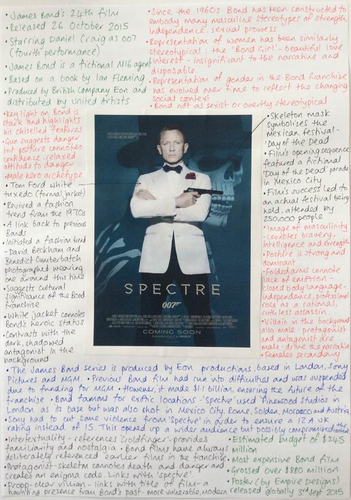 James Bond's 24th film
• Released 26 October 2015
• Starring Daniel Craig as 007
(fourth performance)
• James Bond is a fictional MI6 agent
• Based on a book by Ian Fleming
• Produced by British Company Eon and
distributed by United Artists
• Key light on Bond is
stark and highlights
his chiselled features
• Gun suggests danger
but posture connotes
confidence, relaxed
attitude to danger -
male hero archetype
• Tom Ford white
tuxedo (formal, wealth)
• Revived a fashion
trend from the 1970s
• A link back to previous
Bonds
• Initiated a fashion trend
- David Beckham and
Benedict Cumberbatch
photographed wearing
one around this time
• Suggests cultural
significance of the Bond
franchise
• White jacket connotes
Bond's heroic status
• Contrasts with the
dark, shadowed
antagonist in the
background
• Since the 1960s Bond has been constructed to
embody many masculine stereotypes of strength,
independence, sexual prowess
• Representation of women has been similarly
stereotypical: the 'Bond Girl' - beautiful love
interest - insignificant to the narrative and
disposable
• Representation of gender in the Bond franchise
has evolved over time to reflect the changing
social context
• Bond not as sexist or overtly stereotypical
• Skeleton mask
symbolises the
Mexican festival -
'Day of the Dead'
• Film's opening sequence
featured a fictional
'Day of the Dead' parade
in Mexico City
• Film's success led to
an actual festival being
held, attended by
250,000 people
• Image of masculinity
connotes bravery,
intelligence and strength
• Posture is strong and
dominant
• Folded arms connote
lack of emotion -
closed body language -
independence, professional
role as a rational,
ruthless assassin
• Villain in the background
also male - protagonist
and antagonist are
male: drive the narrative
• Females secondary
SPECTRE
007
COMING SOON
• The James Bond series is produced by Eon productions, based in London, Sony
Pictures and MGM • Previous Bond film had run into difficulties and was suspended
due to funding for MGM • However, it made $1.1 billion, ensuring the future of the
franchise • Bond famous for exotic locations - 'Spectre' used Pinewood Studios in
London as its base but was also shot in Mexico City, Rome, Solden, Morocco and Austria
• Sony had to cut some violence from 'Spectre' in order to ensure a 12A uk
rating instead of 15. This opened up a wider audience but possibly compromised
• Intertextuality - references 'Goldfinger', provides
familiarity and nostalgia • Bond films have always
deliberately referenced earlier films in its franchise
• Antagonist - skeleton connotes death and danger and
creates an enigma code. Links with 'Spectre'.
haunting presence from Bond's past - more vulnerable, modern
• Estimated budget of $245
million
• Most expensive Bond film
• Grossed over $880 million
• Poster (by Empire Design)
released globally 3rd Sept 2015